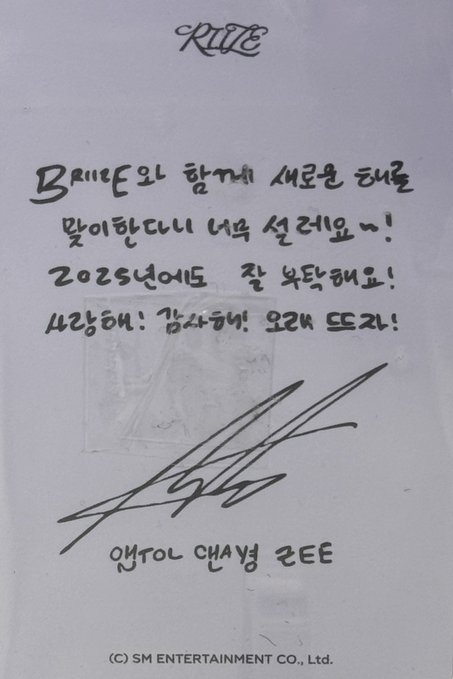 RIIZE
BRIIZE와 함께 새로운 해를
맞이한다니 너무 설레요~!
2025년에도 잘 부탁해요!
사랑해! 감사해! 오래 뜨자!
(C) SM ENTERTAINMENT CO., Ltd.